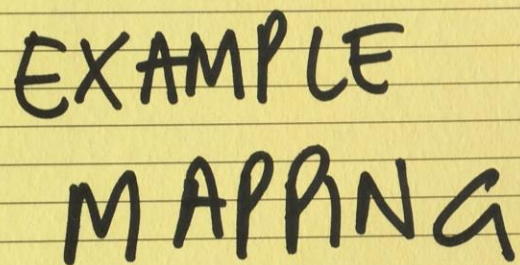 EXAMPLE
MAPPING